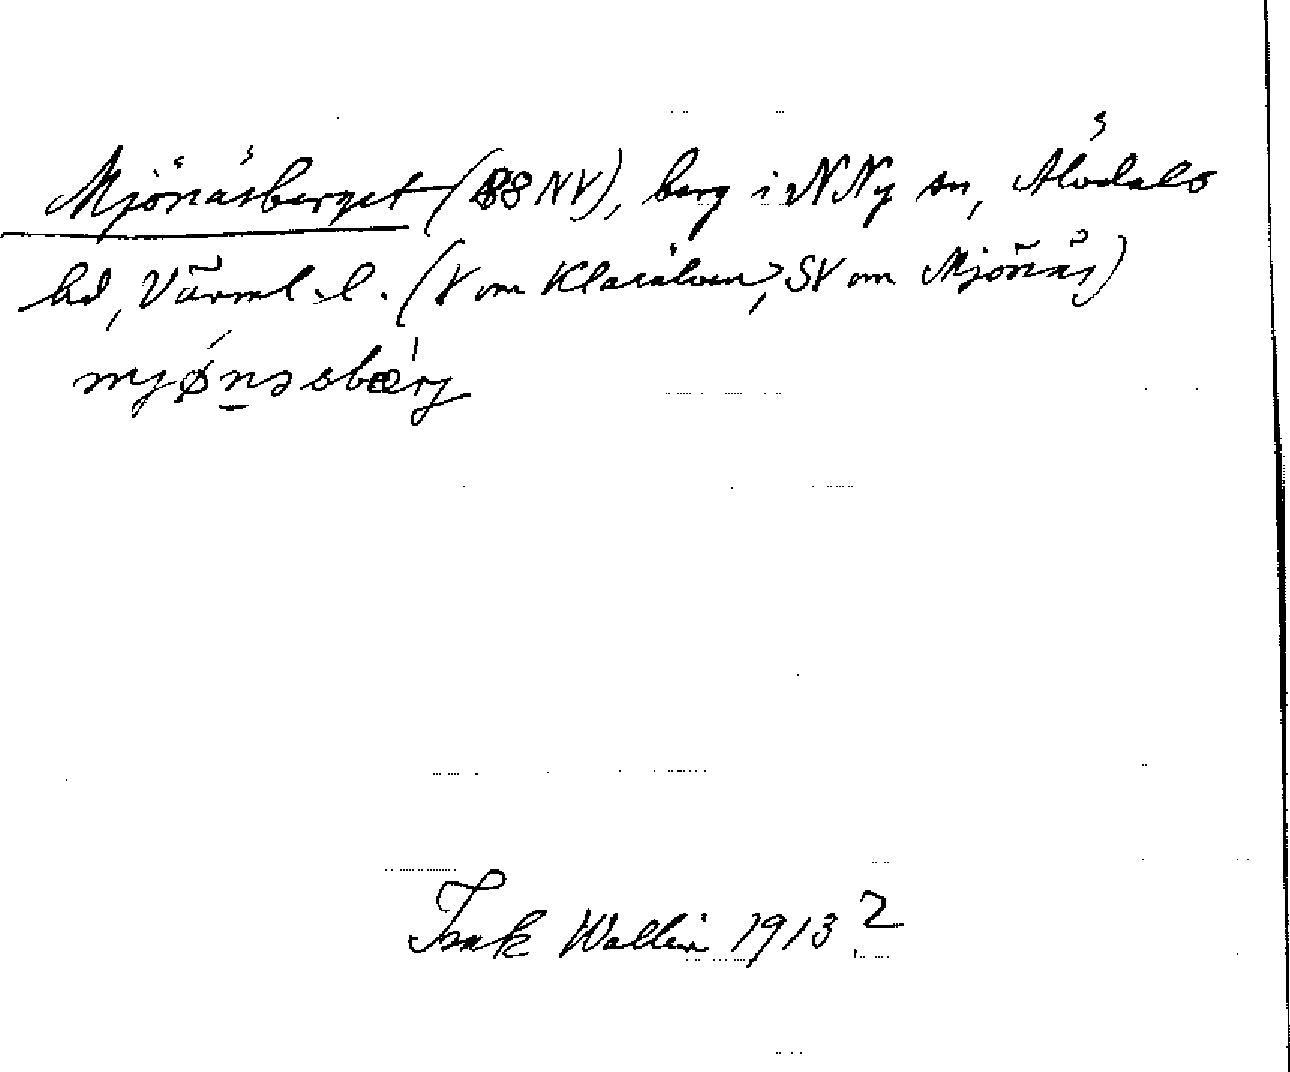 Mjönåsberget (88 NV), berg i N Ny sn, Älvdals
hd, Värml. l. (V om Klarälven, SV om Mjönäs)
mjǿnəsbærj
Isak Wallin 1913 2